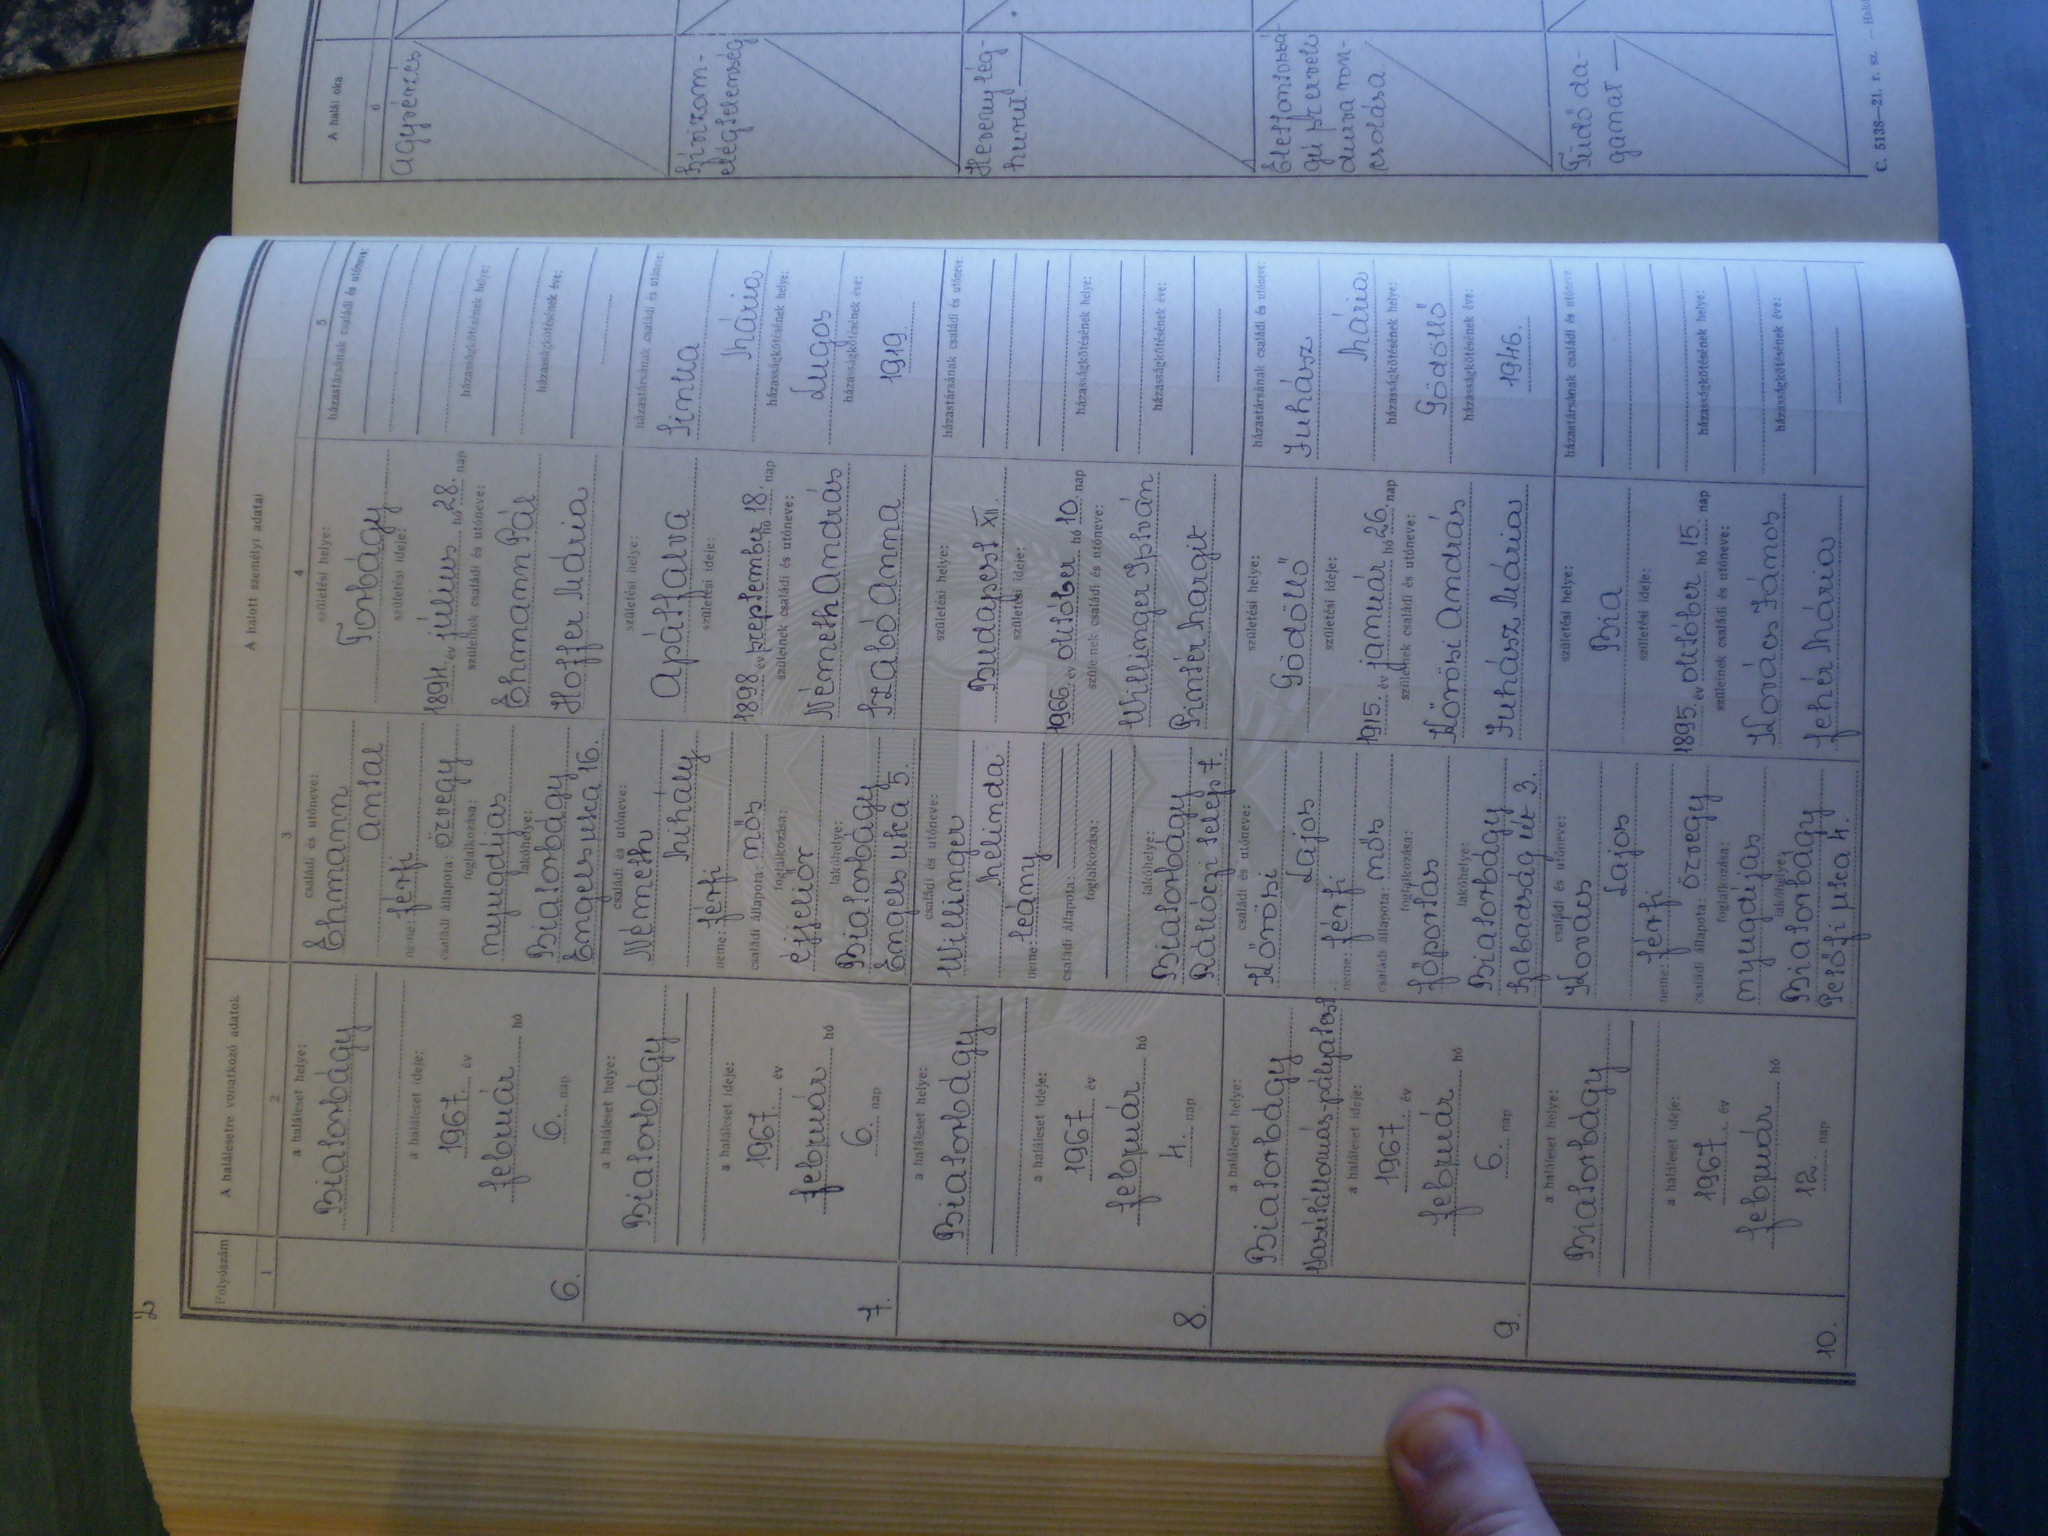 2
Folyószám
A halálesetre vonatkozó adatok
A halott személyi adatai
A halál oka
1
2
3
4
5
6
6.
a haláleset helye:
Biatorbágy
a haláleset ideje:
1967. év
február hó
6. nap
családi és utóneve:
Ehmann
Antal
neme: férfi
családi állapota: özvegy
foglalkozása:
nyugdíjas
lakóhelye:
Biatorbágy
Engels utca 16.
születési helye:
Torbágy
születési ideje:
1894. év július hó 28. nap
szüleinek családi és utóneve:
Ehmann Pál
Hoffer Mária
házastársának családi és utóneve:
házasságkötésének helye:
házasságkötésének éve:
Agyvérzés
7.
a haláleset helye:
Biatorbágy
a haláleset ideje:
1967. év
február hó
6. nap
családi és utóneve:
Németh
Mihály
neme: férfi
családi állapota: nős
foglalkozása:
éjjeliőr
lakóhelye:
Biatorbágy
Engels utca 5.
születési helye:
Apátfalva
születési ideje:
1898 év szeptember hó 18. nap
szüleinek családi és utóneve:
Németh András
Szabó Anna
házastársának családi és utóneve:
Sinka
Mária
házasságkötésének helye:
Lugos
házasságkötésének éve:
1919.
Szívizom-
elégtelenség
8.
a haláleset helye:
Biatorbágy
a haláleset ideje:
1967. év
február hó
4. nap
családi és utóneve:
Willinger
Melinda
neme: leány
családi állapota:
foglalkozása:
lakóhelye:
Biatorbágy
Rákóczi telep 7.
születési helye:
Budapest XII.
születési ideje:
1966. év október hó 10. nap
szüleinek családi és utóneve:
Willinger István
Pintér Margit
házastársának családi és utóneve:
házasságkötésének helye:
házasságkötésének éve:
Heveny lég-
hurut
9.
a haláleset helye:
Biatorbágy
Vasútállomás-pályatest
a haláleset ideje:
1967 év
február hó
6. nap
családi és utóneve:
Kőrösi
Lajos
neme: férfi
családi állapota: nős
foglalkozása:
főportás
lakóhelye:
Biatorbágy
Szabadság út 3.
születési helye:
Gödöllő
születési ideje:
1915. év január hó 26. nap
szüleinek családi és utóneve:
Kőrösi András
Juhász Mária
házastársának családi és utóneve:
Juhász
Mária
házasságkötésének helye:
Gödöllő
házasságkötésének éve:
1946.
Életfontossá-
gú szervek
durva ron-
csolása
10.
a haláleset helye:
Biatorbágy
a haláleset ideje:
1967. év
február hó
12. nap
családi és utóneve:
Kovács
Lajos
neme: férfi
családi állapota: özvegy
foglalkozása:
nyugdíjas
lakóhelye:
Biatorbágy
Petőfi utca 4.
születési helye:
Bia
születési ideje:
1895. év október hó 15. nap
szüleinek családi és utóneve:
Kovács János
Fehér Mária
házastársának családi és utóneve:
házasságkötésének helye:
házasságkötésének éve:
Tüdő da-
ganat
C. 5138—21. r. sz. —